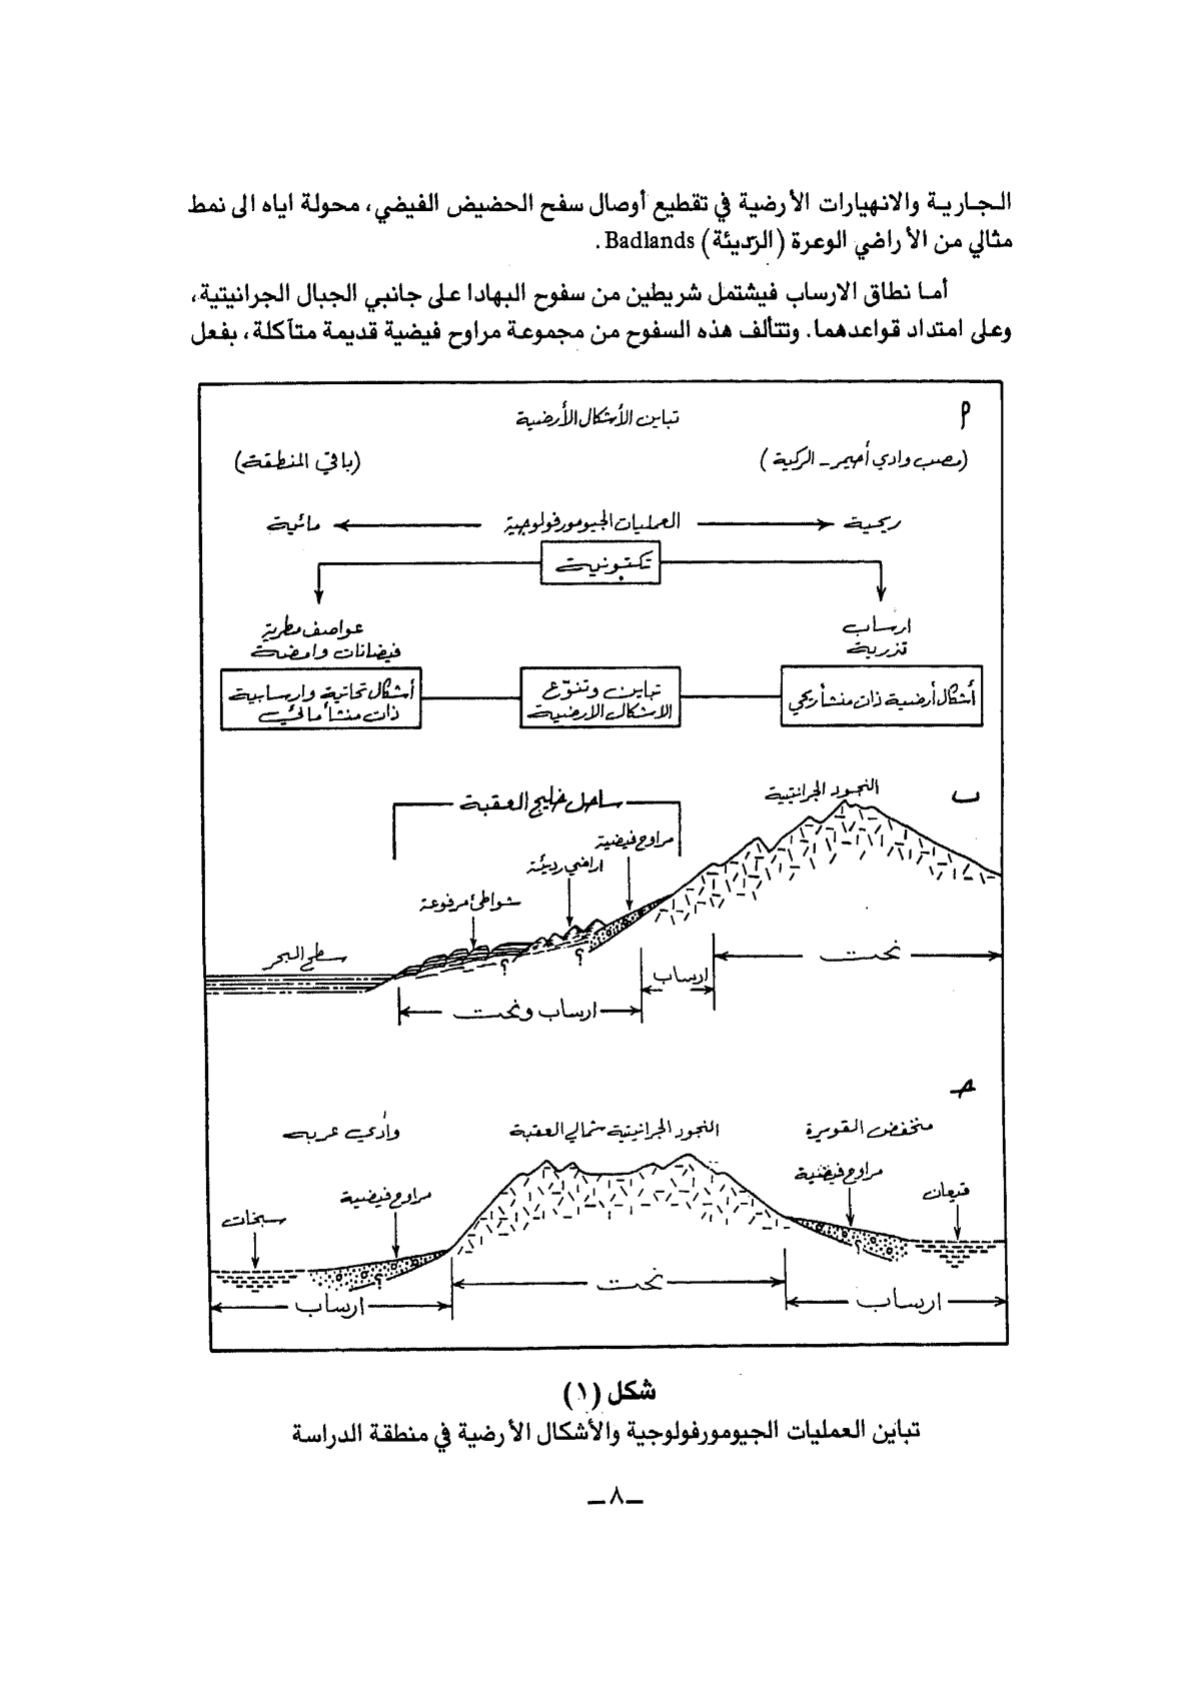 الجارية والانهيارات الأرضية في تقطيع أوصال سفح الحضيض الفيضي، محولة اياه الى نمط
مثالي من الأراضي الوعرة (الرديئة) Badlands .
أما نطاق الارساب فيشتمل شريطين من سفوح البهادا على جانبي الجبال الجرانيتية،
وعلى امتداد قواعدهما. وتتألف هذه السفوح من مجموعة مراوح فيضية قديمة متآكلة، بفعل
أ
تباين الأشكال الأرضية
(مصب وادي أحيمر - الركية) (باقي المنطقة)
ريحية العمليات الجيومورفولوجية مائية
تكتونية
ارساب عواصف مطرية
قذرية فيضانات وامضة
أشكال أرضية ذات منشأ ريحي
تباين وتنوّع
الاشكال الارضية
أشكال تحاتية وارسابية
ذات منشأ مائي
ب
النجود الجرانيتية
ساحل خليج العقبة
مراوح فيضية
اراضي رديئة
شواطئ مرفوعة
سطح البحر
؟ ؟
نحت
ارساب
ارساب ونحت
جـ
منخفض القويرة النجود الجرانيتية شمالي العقبة وادي عربه
مراوح فيضية
قيعان
مراوح فيضية
سبخات
؟ ؟
ارساب نحت ارساب
شكل (١)
تباين العمليات الجيومورفولوجية والأشكال الأرضية في منطقة الدراسة
ـ٨ـ